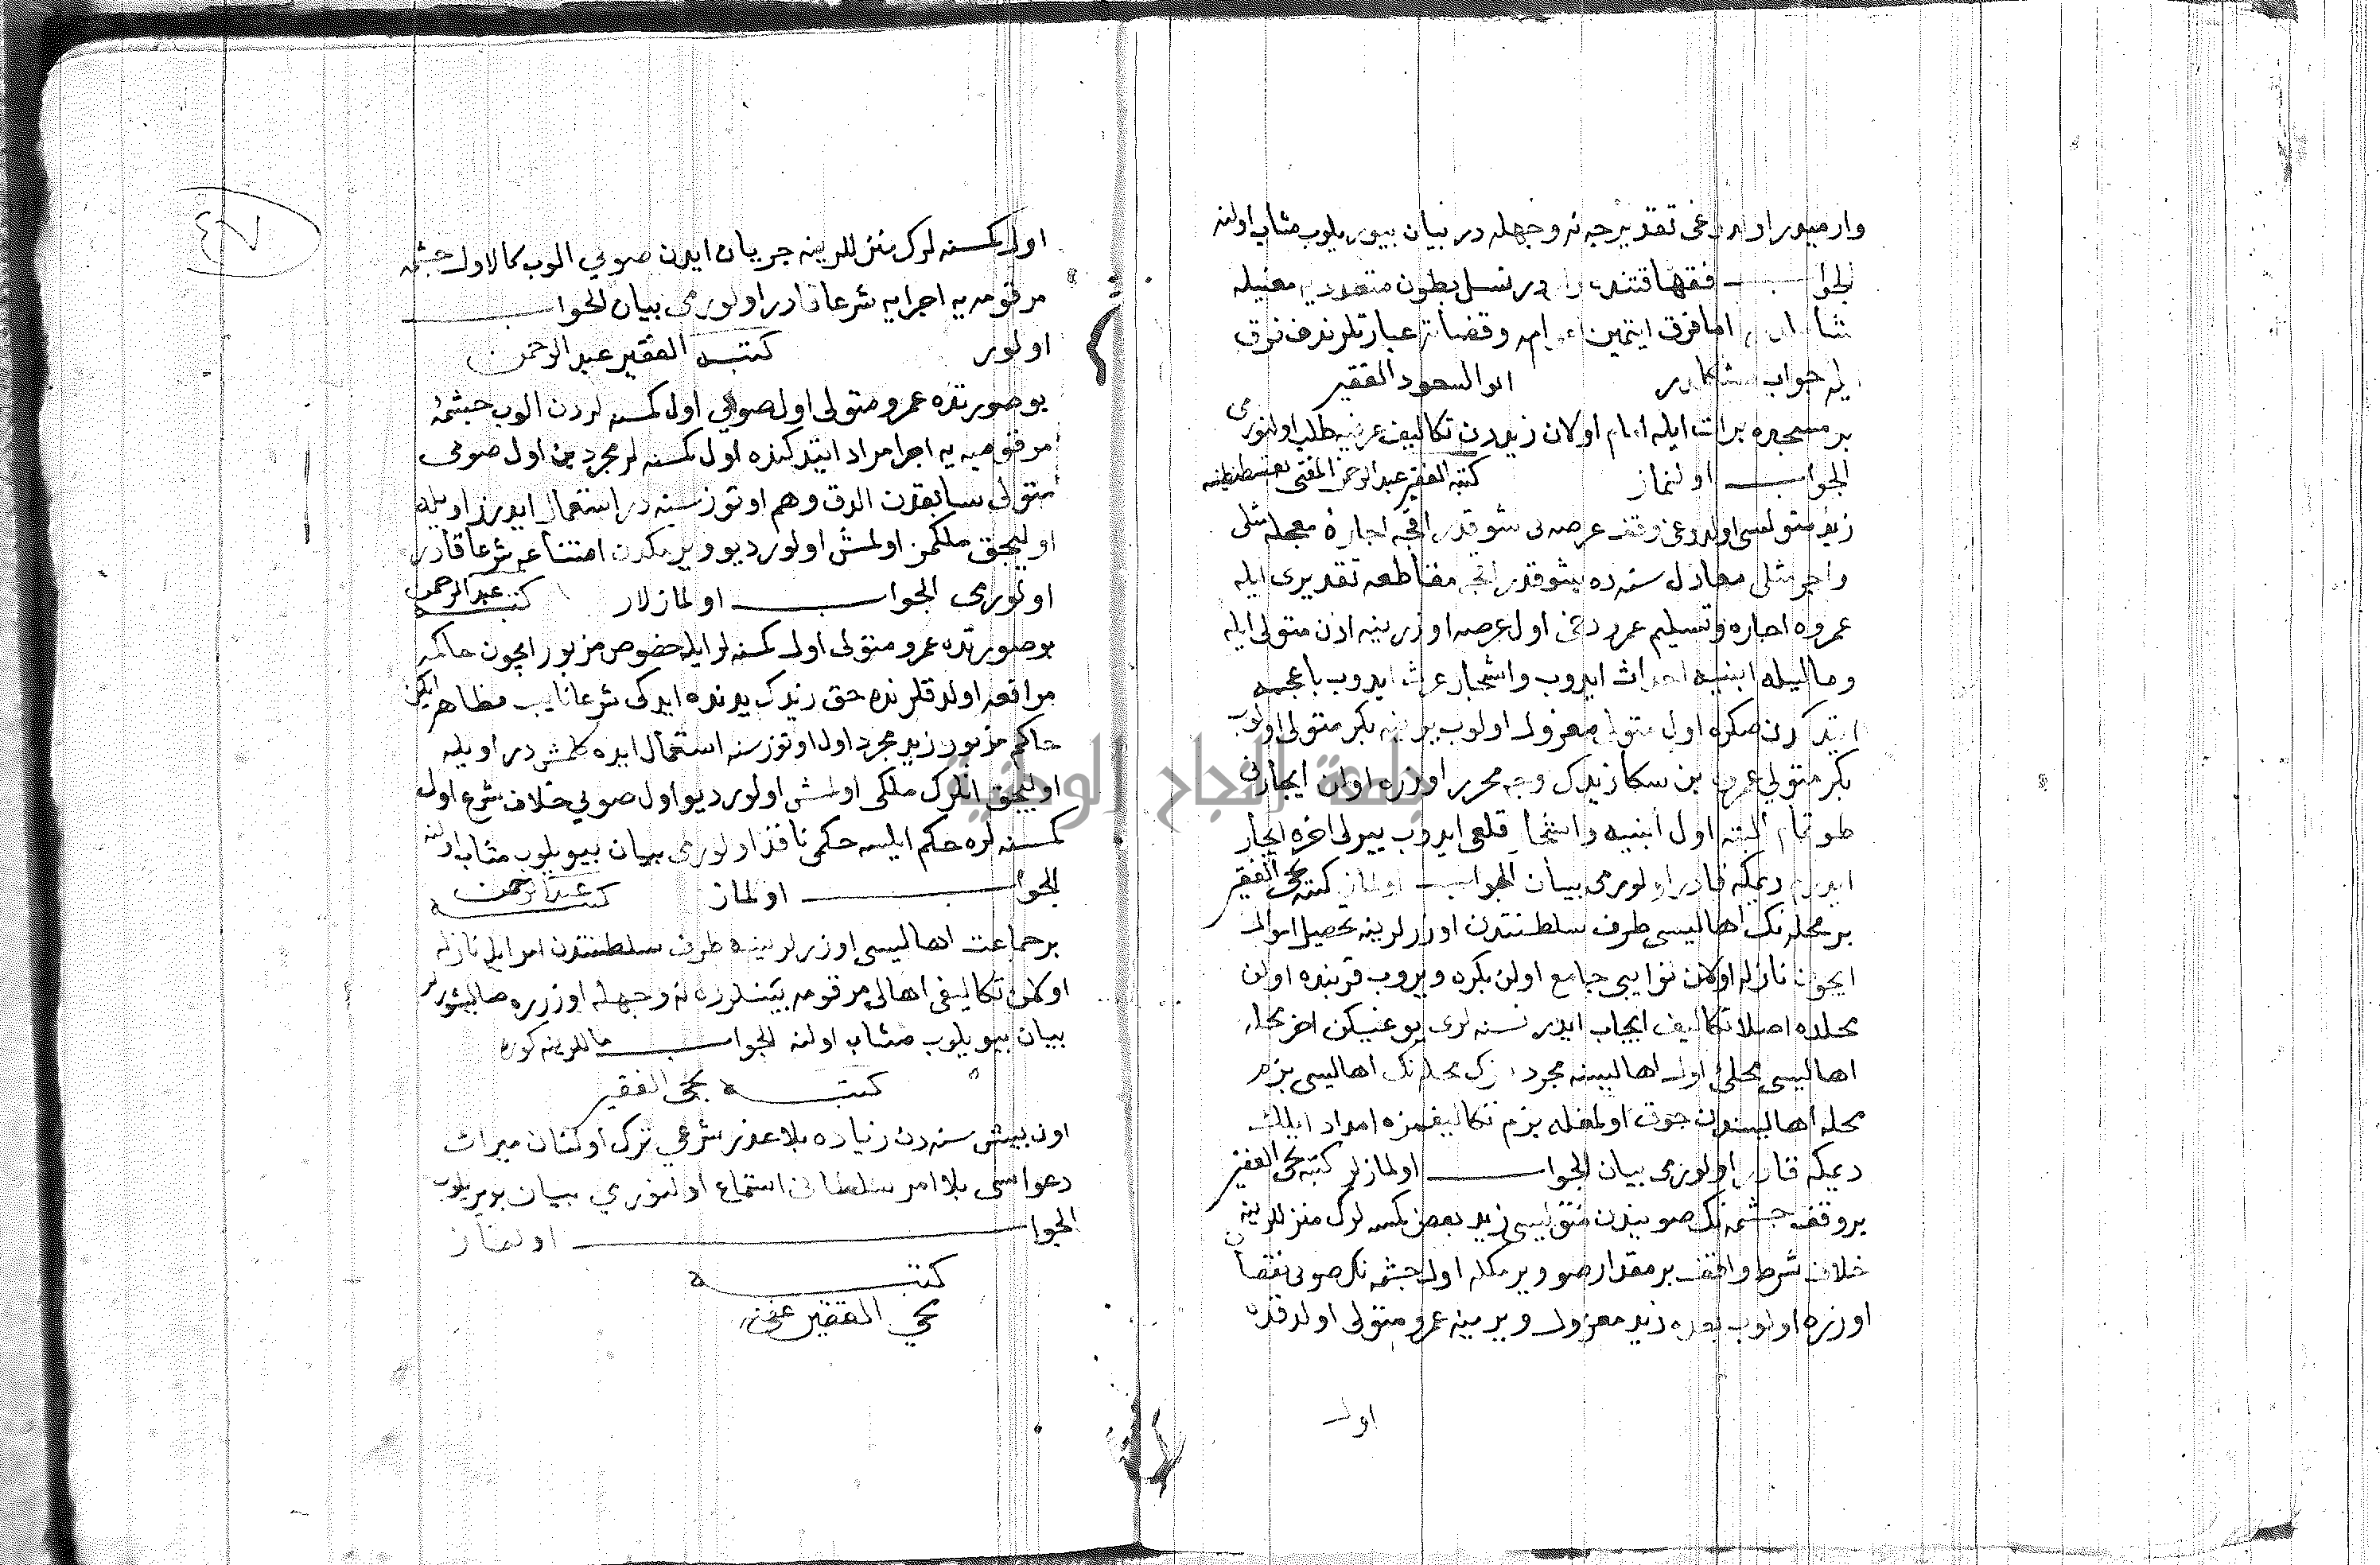 وارميدر اولدوغى تقديرجه نه وجهله در بيان بيوريلوب مثاب اولنه
الجواب فقها قتنده واردر نسل بطون متعدديه معنيله
شاملدر اما فرق ايتمين عوام وقضاتڭ عبارتلرندن فرق
ايله جواب مشكلدر ابوالسعود الفقير
بر مسجده برات ايله امام اولان زيددن تكاليف عرفيه طلب اولنورمى
الجواب اولنماز كتبه الفقير عبدالرحمن المفتى بقسطنطنيه
زيد متوليسى اولدوغى وقف عرصه يى شوقدر اقچه اجارهٔ معجله مثلى
واجر مثلى معادل سنه ده شوقدر اقچه مقاطعه تقديرى ايله
عمروه اجاره وتسليم عمرو دخى اول عرصه اوزرينه اذن متولى ايله
وماليله ابنيه احداث ايدوب واشجار غرث ايدوب باغچه
ايتدكدن صكره اول متولى معزول اولوب يرينه بكر متولى اولوب
بكر متولى عمروه بن سكا زيدك وجه محرر اوزره اولان ايجارنى
طوتمام البته اول ابنيه واشجار قلع ايدوب ييرلى اخره ايجار
ايدرم ديمكه قادر اولورمى بيان الجواب اولماز كتبه يحيى الفقير
بر محله نك اهاليسى طرف سلطنتدن اوزرلرينه تحصيل اموال
ايچون نازله اولان نوايبى جامع اولن بكره ويروب قربنده اولن
محلده اصلا تكاليف ايجاب ايدر نسنه لرى يوغيكن اخر محله
اهاليسى محلهٔ اول اهاليسنه مجرد سزك محله نك اهاليسى بزم
محله اهاليسندن چوق اولمغله بزم تكاليفمزه امداد ايلك
ديمكه قادر اولورمى بيان الجواب اولمازلر كتبه يحيى الفقير
بر وقف چشمه نك صويندن متوليسى زيد بعض كمسنه لرك منزللرينه
خلاف شرط واقف بر مقدار صو ويرمكله اول چشمه نك صويى نقصان
اوزره اولوب بعده زيد معزول ويرينه عمرو متولى اولدقده
اول
٤٧
اول كمسنه لرك منزللرينه جريان ايدن صويى الوب كالاول چشمه
مرقومه يه اجرايه شرعا قادر اولورمى بيان الجواب
اولور كتبه الفقير عبدالرحمن
بو صورتده عمرو متولى اول صويى اول كمسنه لردن الوب چشمهٔ
مرقومه يه اجرا مراد ايتدكنده اول كمسنه لر مجرد بز اول صويى
متولى سابقدن الدق وهم اوتوز سنه در استعمال ايدرز اويله
اوليجق ملكمز اولمش اولور ديو ويرمكدن امتناعه شرعا قادر
اولورمى الجواب اولمازلار كتبه عبدالرحمن
بو صورتده عمرو متولى اول كمسنه لر ايله خصوص مزبور ايچون حاكمه
مرافعه اولدقلرنده حق زيدك يدنده ايدكى شرعا نايب مظاهر ايكن
حاكم مزبور زيد مجرد اول اوتوز سنه استعمال ايده كلمش در اويله
اوليجق انلرك ملكى اولمش اولور ديو اول صويى خلاف شرع اول
كمسنه لره حكم ايلسه حكمى نافذ اولورمى بيان بيوريلوب مثاب اولنه
الجواب اولماز كتبه عبدالرحمن
بر جماعت اهاليسى اوزرلرينه طرف سلطنتدن امر ايله نازله
اولان تكاليفى اهالى مرقومه بينلرنده نه وجهله اوزره صاليشورلر
بيان بيوريلوب مثاب اولنه الجواب ماللرينه كوره
كتبه يحيى الفقير
اون بيش سنه دن زياده بلا عذر شرعى ترك اولنان ميراث
دعواسى بلا امر سلطانى استماع اولنورمى بيان بويريلوب
الجواب اولنماز
كتبه
يحيى الفقير عفى عنه
جامعة النجاح الوطنية